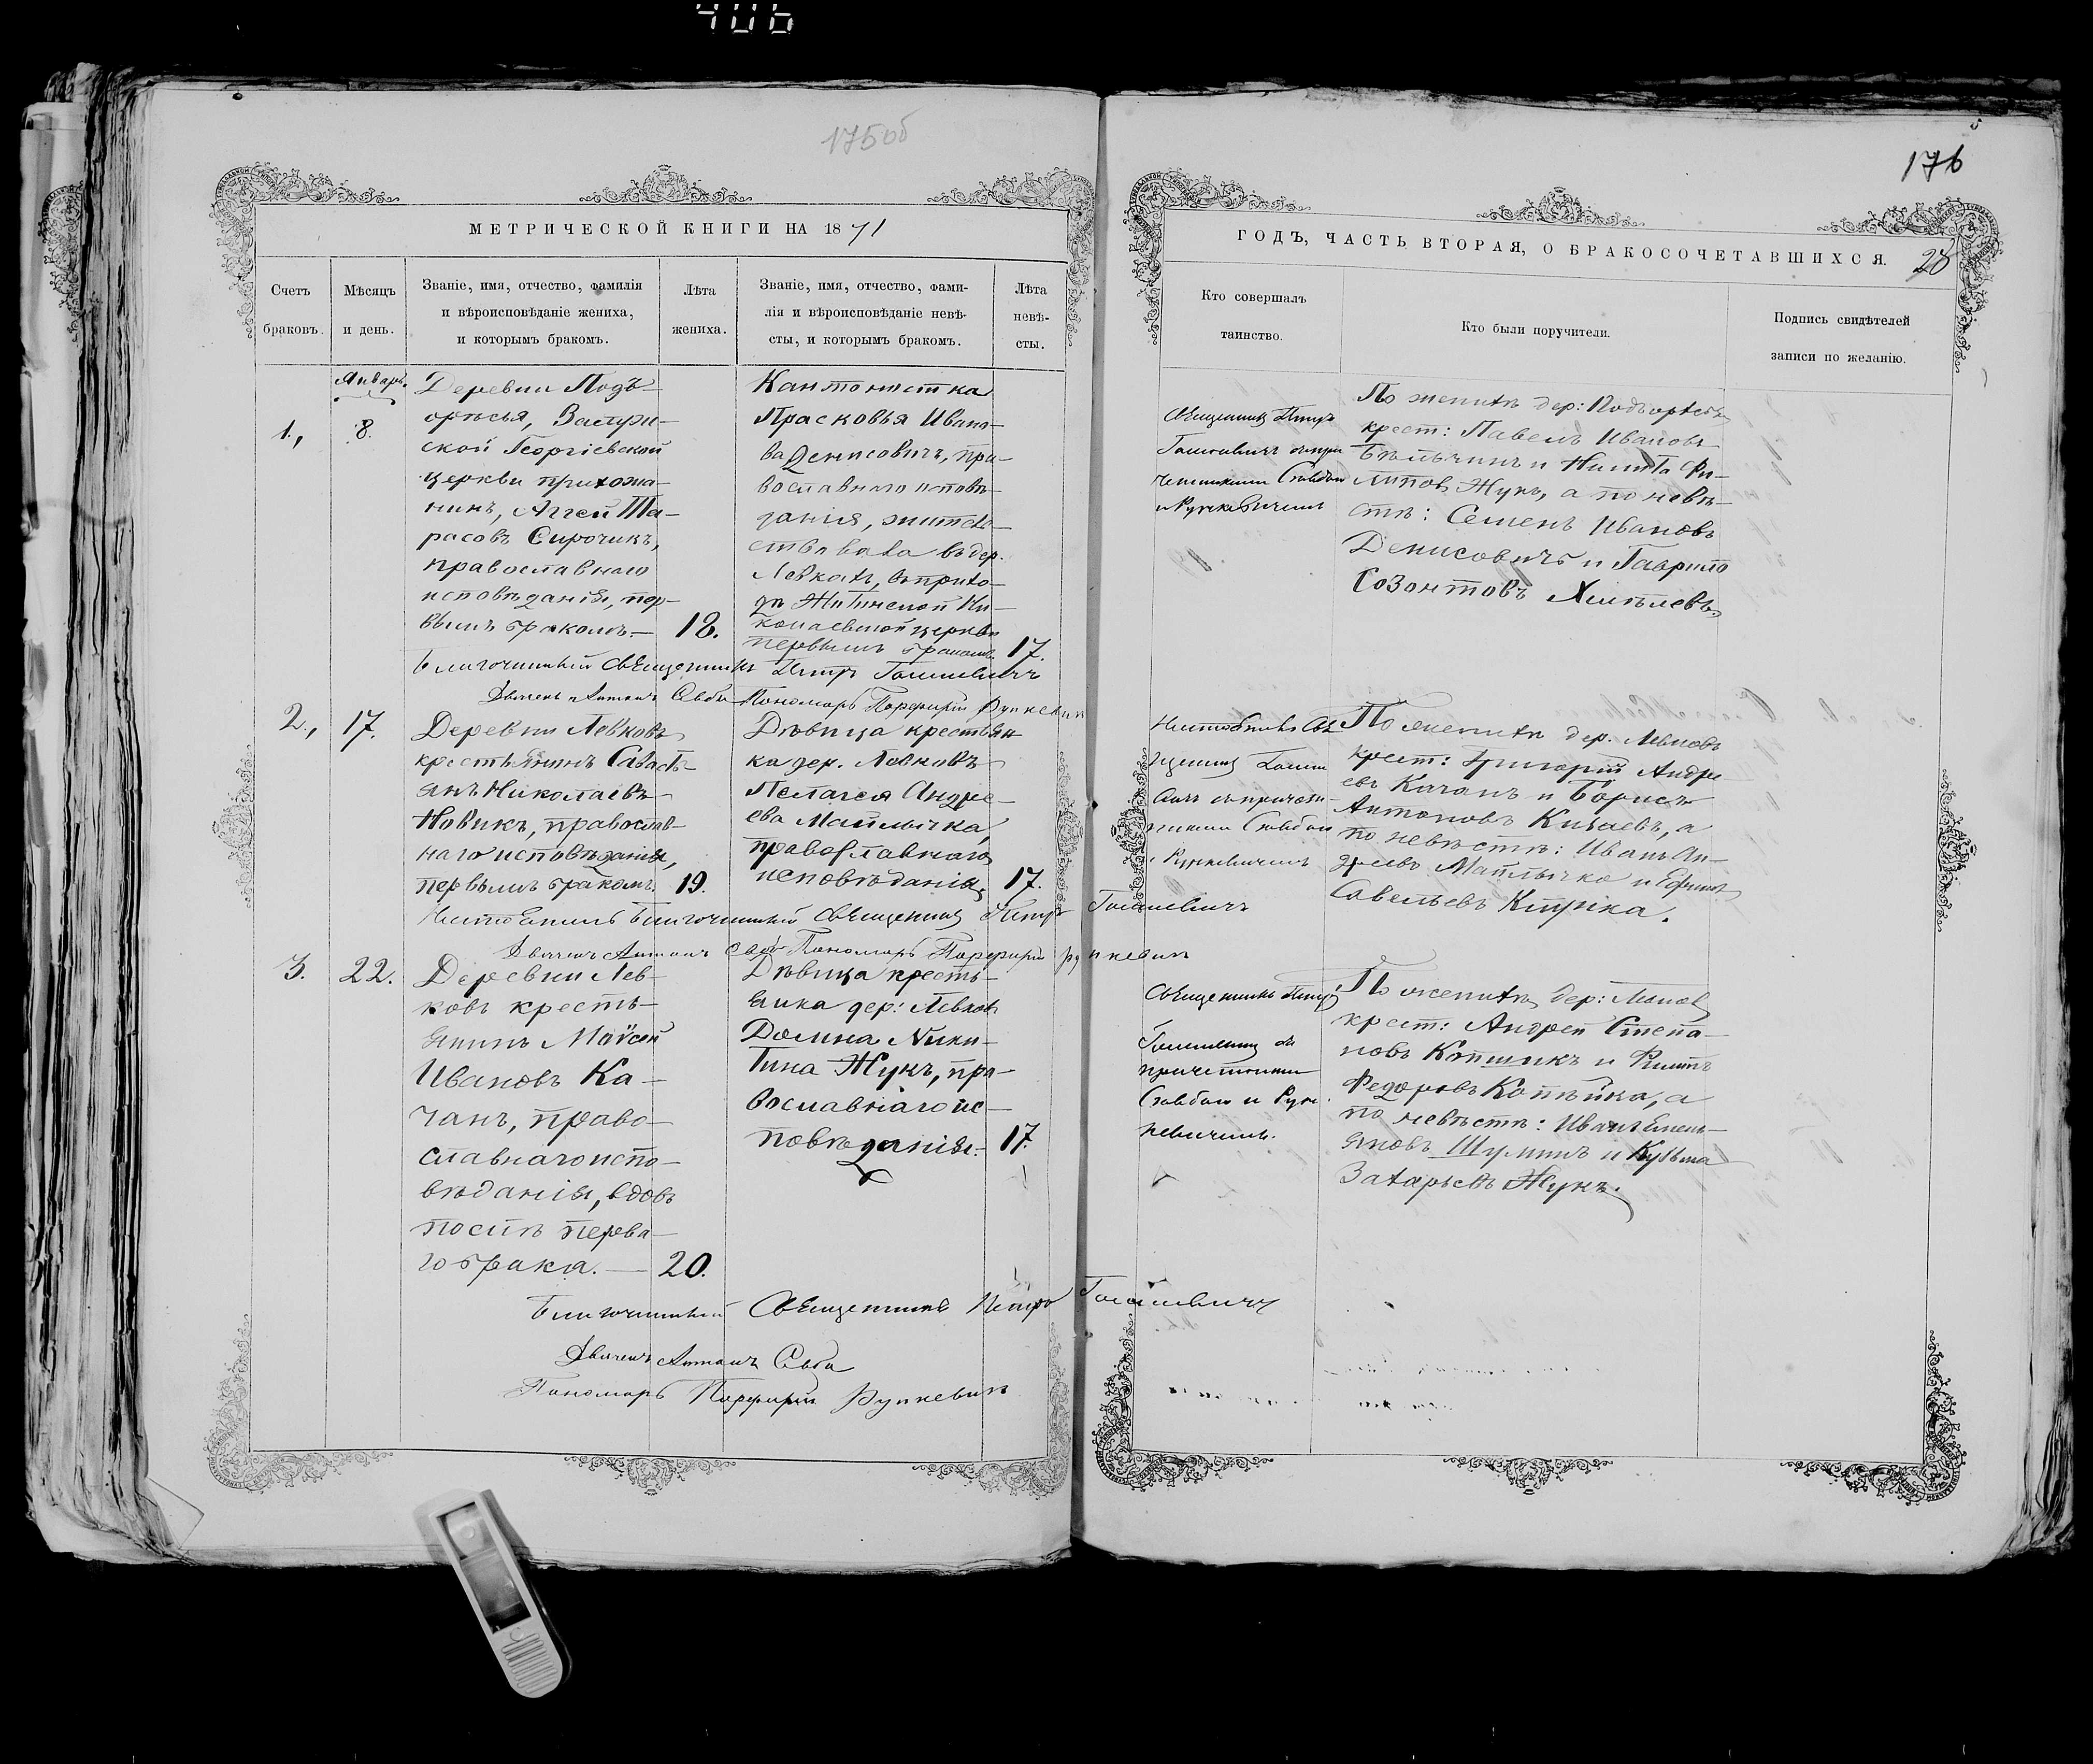 406
175об
176
МЕТРИЧЕСКОЙ КНИГИ НА 1871
ГОДЪ, ЧАСТЬ ВТОРАЯ, О БРАКОСОЧЕТАВШИХСЯ.
28
Счетъ
браковъ.
Мѣсяцъ
и день.
Званіе, имя, отчество, фамилія
и вѣроисповѣданіе жениха,
и которымъ бракомъ.
Лѣта
жениха.
Званіе, имя, отчество, фами-
лія и вѣроисповѣданіе невѣ-
сты, и которымъ бракомъ.
Лѣта
невѣ-
сты.
Кто совершалъ
таинство.
Кто были поручители.
Подпись свидѣтелей
записи по желанію.
Январь.
1.,
8.
Деревни Подъ-
орѣсья,
ской Георгіевской
церкви прихожа-
нинъ, Аггей Та-
расовъ Сирочикъ,
православнаго
исповѣданія, пер-
вымъ бракомъ.— 18.
Кантонистка
Прасковья Ивано-
ва Денисовичъ, пра-
вославнаго исповѣ-
данія, жительс-
въ дер.
Левкахъ, въ прихо-
дѣ Житинской Ни-
колаевской церкви
первымъ бракомъ. 17.
Священникъ Петръ
съ при-
четниками
По женихѣ дер: Подъорѣсья
крест: Павелъ Ивановъ
и Никита Фи-
липовъ Жукъ, а по невѣ-
стѣ: Семенъ Ивановъ
Денисовичъ и Гаврило
Созонтовъ Хмѣлевъ.
Благочинный Священникъ Петръ
Дьячекъ Антонъ Пономарь Порфирій Рункевичъ
2.,
17.
Деревни Левковъ
крестьянинъ Савасть-
янъ Николаевъ
Новикъ, православ-
наго исповѣданія,
первымъ бракомъ. 19.
Дѣвица крестьян-
ка дер. Левковъ
Пелагея Андре-
ева
православнаго
исповѣданія. 17.
По женихѣ дер. Левковъ
крест: Григорій Андре
евъ Качанъ и Борисъ
Антоновъ а
по невѣстѣ: Иванъ Ан-
дреевъ и Ефимъ
Савельевъ
Благочинный Священникъ Петръ
Дьячекъ Антонъ Пономарь Порфирій Рункевичъ
3.
22.
Деревни Лев-
ковъ кресть-
янинъ Моѵсей
Ивановъ Ка-
чанъ, право-
славнаго испо-
вѣданія, вдовъ
послѣ перва-
го брака.— 20.
Дѣвица кресть-
янка дер: Левковъ
Домна Ники-
тина Жукъ, пра-
вославнаго ис-
повѣданія.— 17.
Священникъ Петръ
съ
причетниками
и Рун-
кевичемъ.
По женихѣ дер:
крест: Андрей Степа-
новъ и
Федоровъ Копѣйка, а
по невѣстѣ: Иванъ Емель-
яновъ Шуминъ и Кузьма
Захарьевъ Жукъ.
Благочинный Священникъ Петръ
Дьячекъ Антонъ
Пономарь Порфирій Рункевичъ